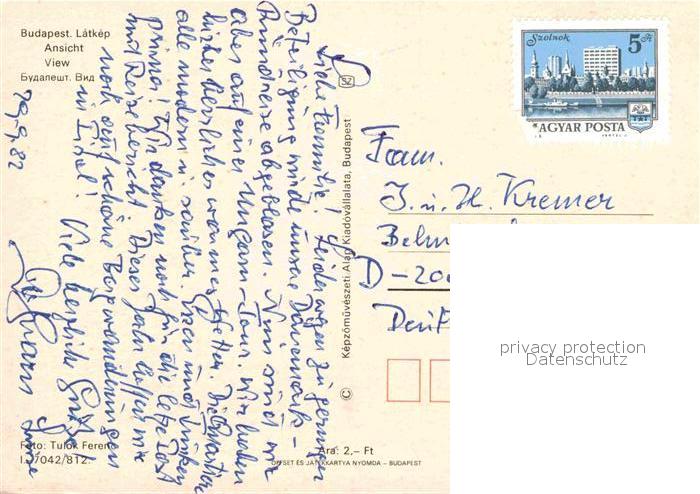 Budapest. Látkép
Ansicht
View
Будапешт. Вид
29.9.82
Liebe Familie! Leider wegen zu geringer
Beteiligung wurde unsere Dänemark-
Rundreise abgeblasen. Nun sind wir
aber auf einer Ungarn-Tour. Wir haben
bisher herrliches warmes Wetter. Die Quartiere
alle modern u. sauber. Essen und Trinken
prima! Wir danken noch für die letzte Post
und Reisebericht. Dieses Jahr hoffen wir
noch auf schöne Bergwanderungen
Viele herzliche Grüße
Foto: Tulok Ferenc
I. 7042/812.
SZ
© Képzőművészeti Alap Kiadóvállalata, Budapest
Ára: 2,– Ft
OFFSET ÉS JÁTÉKKÁRTYA NYOMDA – BUDAPEST
Szolnok
5 Ft
MAGYAR POSTA
Fam.
J. u. H. Kremer
D-20
privacy protection
Datenschutz